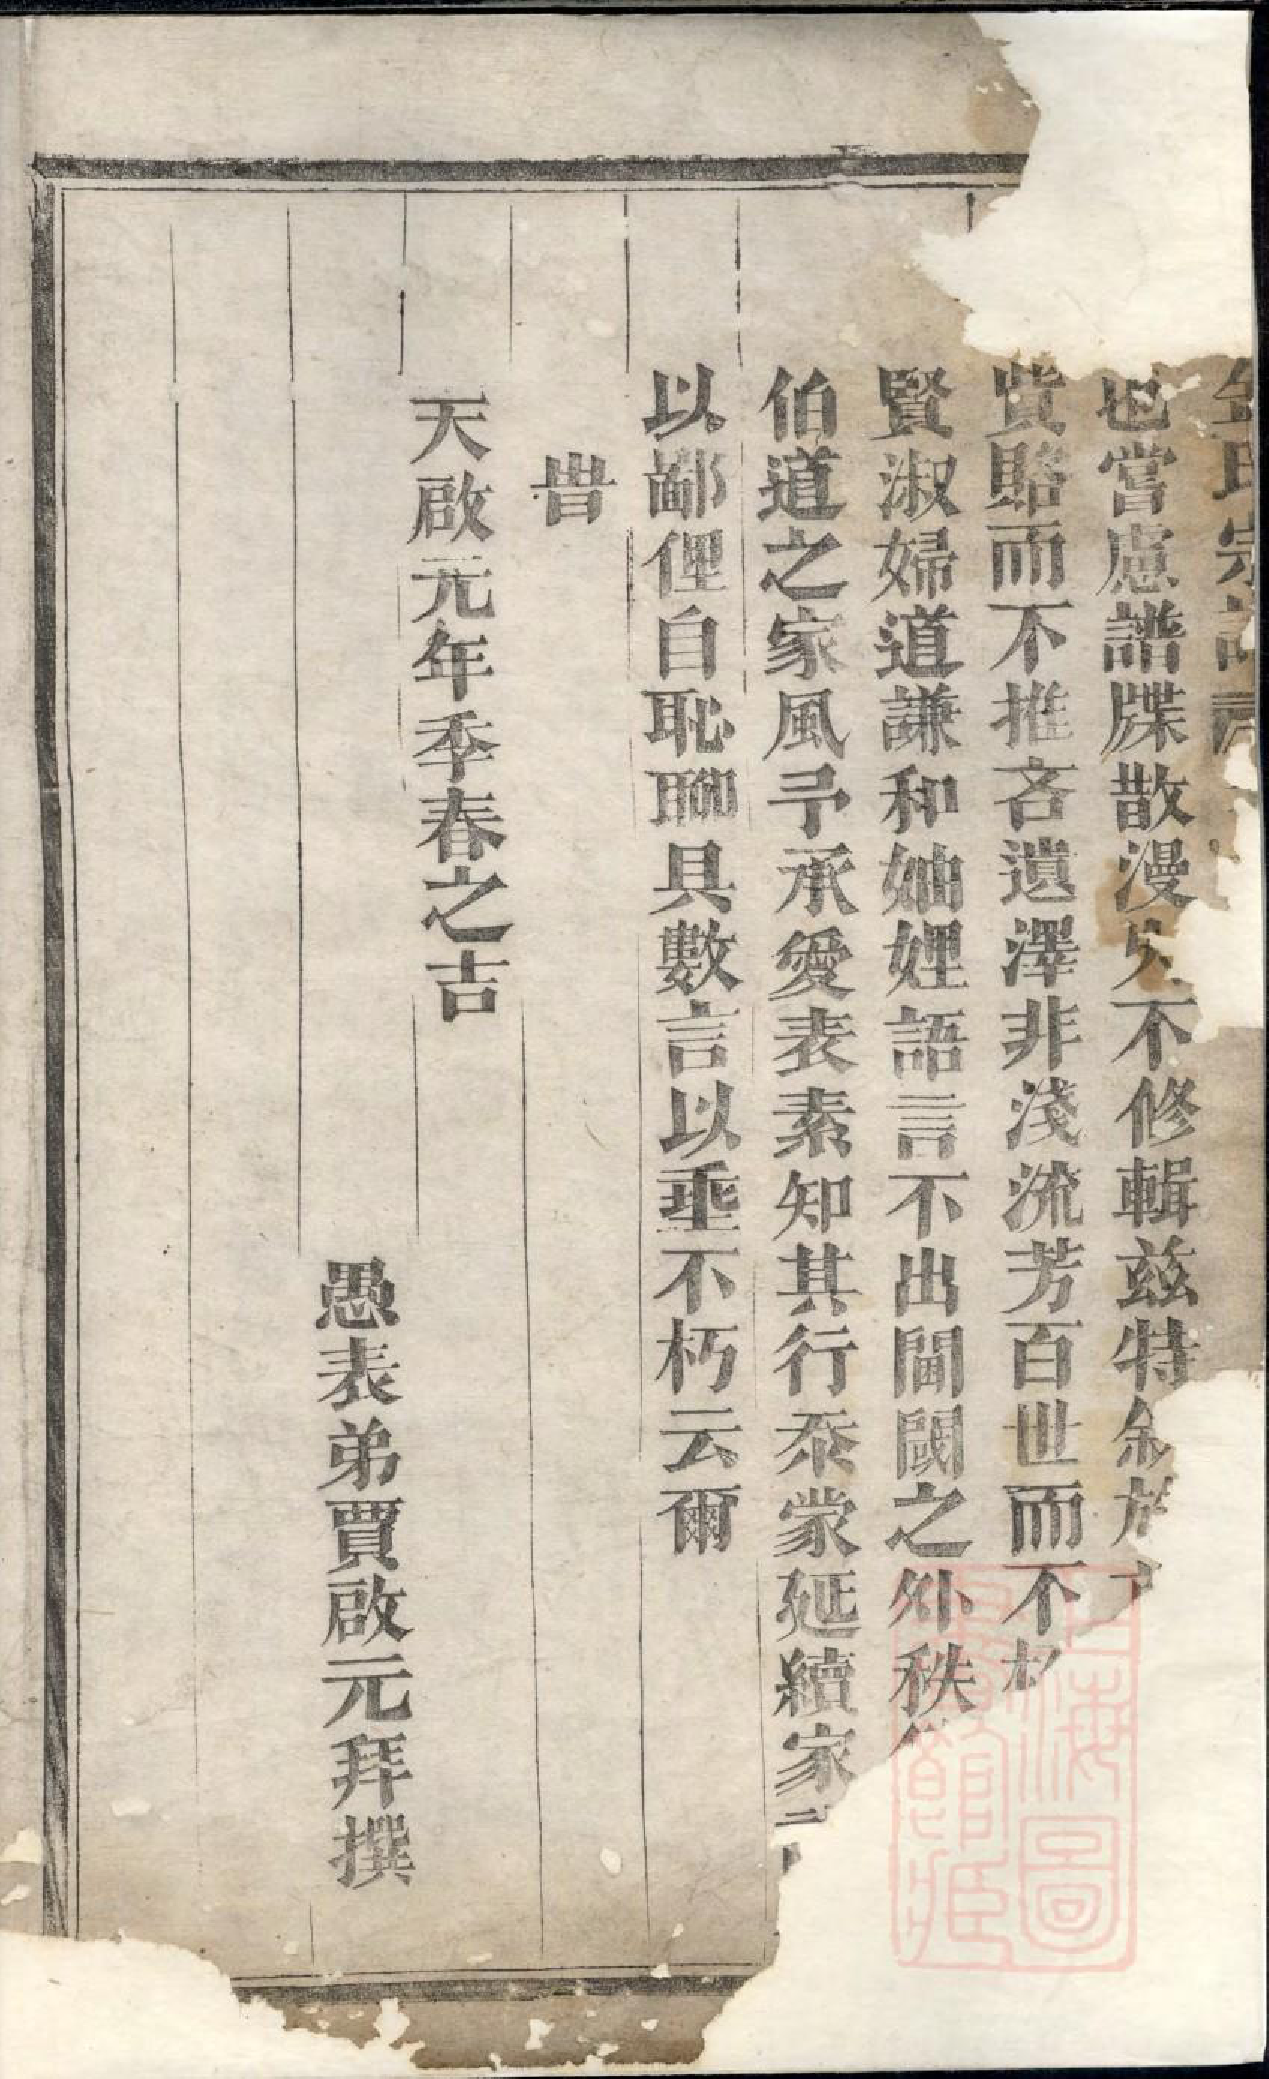 氏宗譜
也嘗慮譜牒散漫失不修輯兹特叙於
貲賂而不推吝遺澤非淺流芳百世而不朽
賢淑婦道謙和妯娌語言不出閫閾之外秩
伯道之家風予承愛表素知其行泰蒙延續家
以鄙俚自恥聊具數言以垂不朽云爾
旹
天啟元年季春之吉
愚表弟賈啟元拜撰
上海圖書館藏